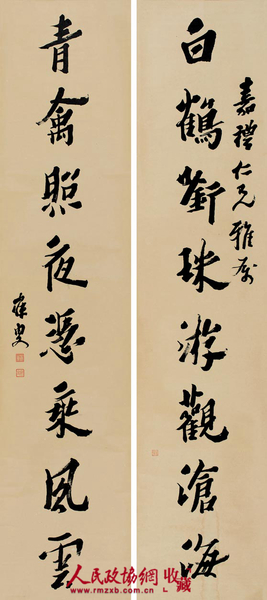 白鶴銜珠游觀滄海
嘉禮仁兄雅屬
青禽照夜憑乘風雲
寐叟
人民政协網收藏
www.rmzxb.com.cn